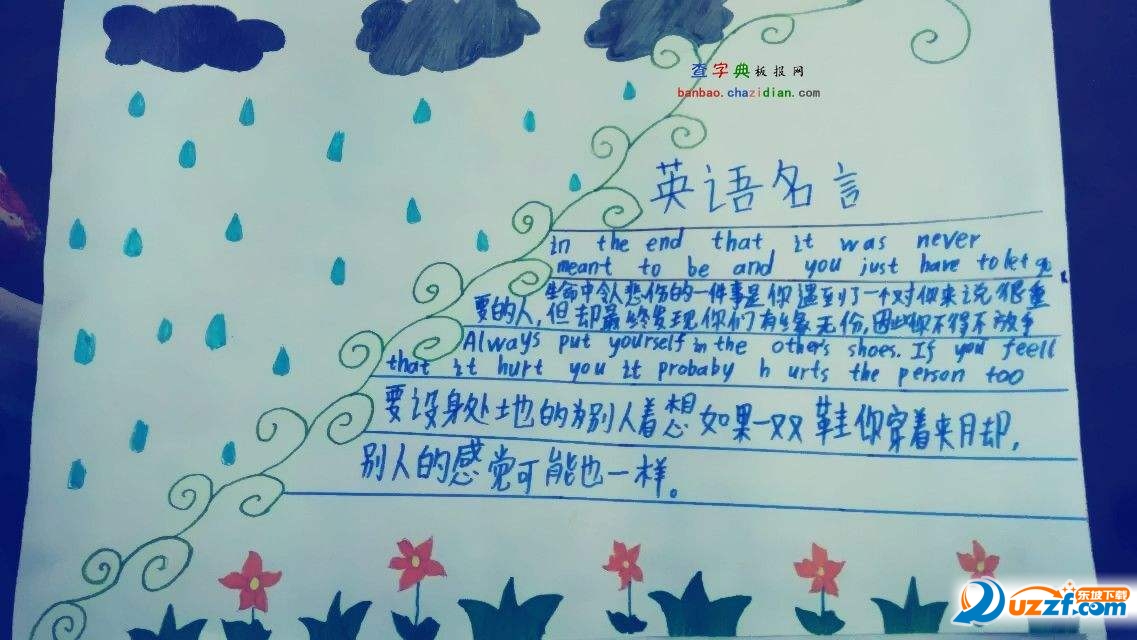 查字典板报网
banbao.chazidian.com
英语名言
in the end that it was never
meant to be and you just have to let go
生命中令人悲伤的一件事是你遇到了一个对你来说很重
要的人,但却最终发现你们有缘无份,因此你不得不放手
Always put yourself in the other's shoes. If you feell
that it hurt you it probaby hurts the person too
要设身处地的为别人着想如果一双鞋你穿着夹月却,
别人的感觉可能也一样。
东坡下载
uzzf.com